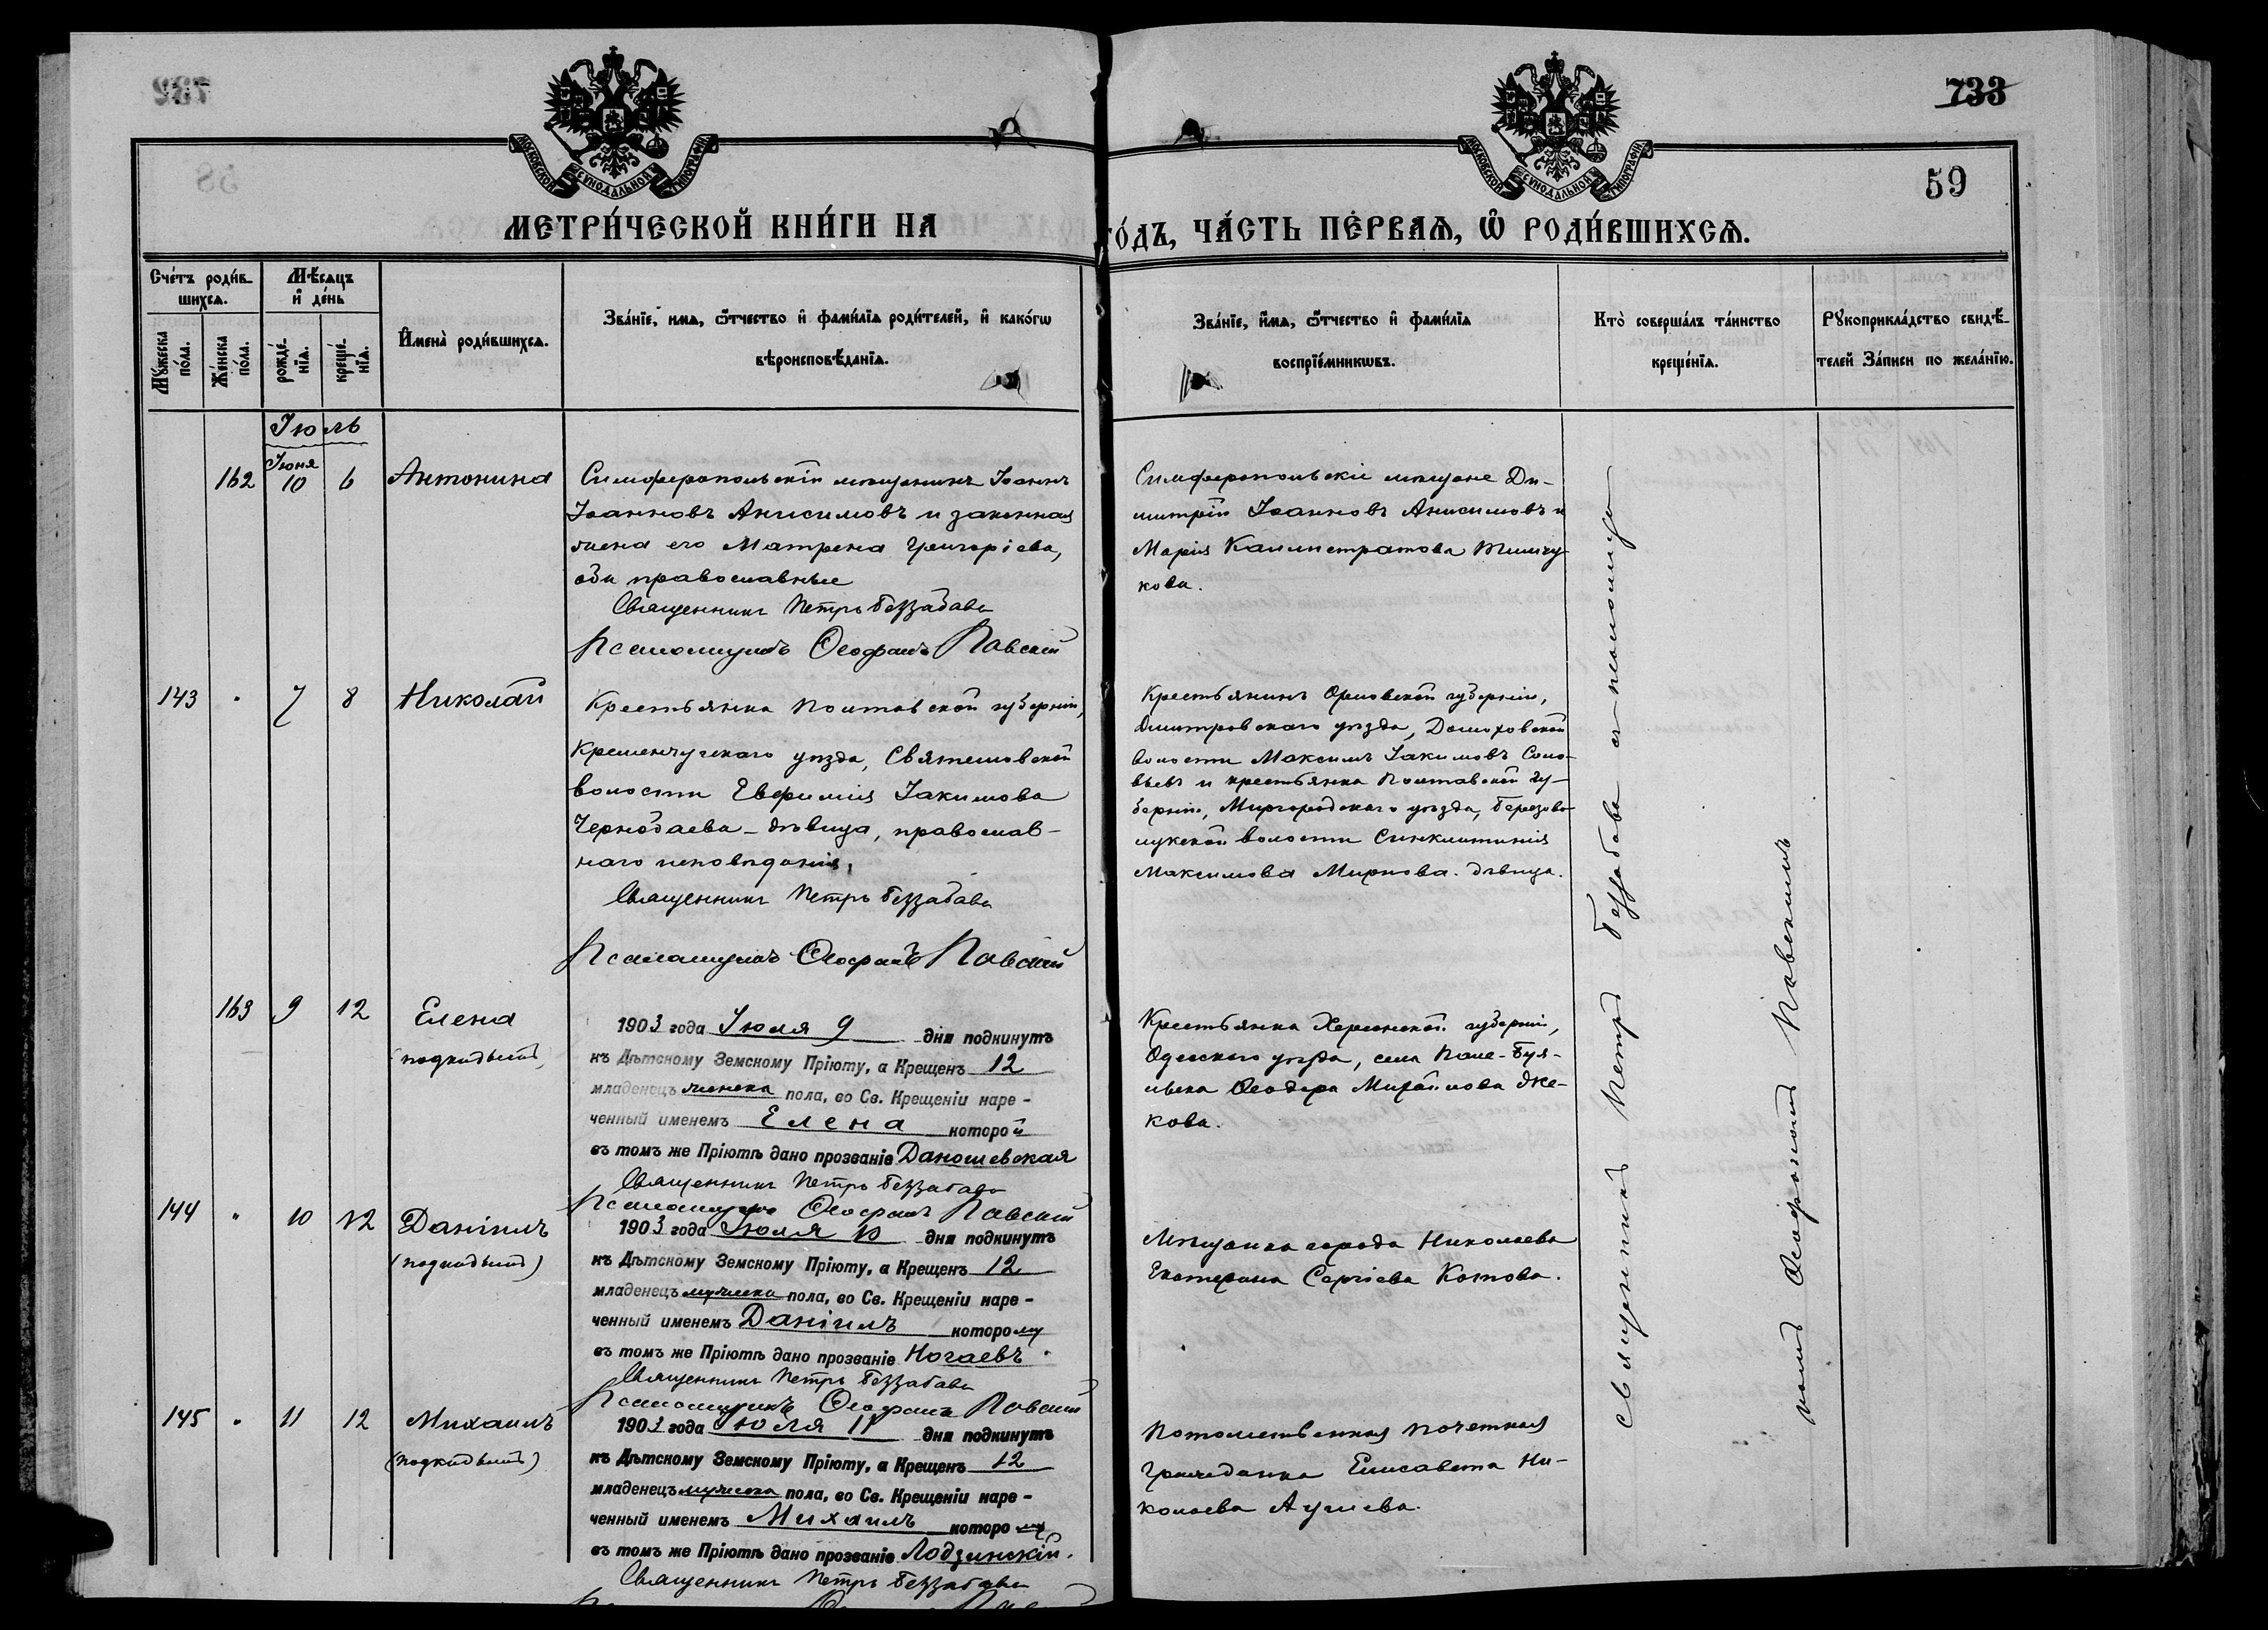 733
59
МОСКОВСКОЙ СѴНОДАЛЬНОЙ ТИПОГРАФІИ
МОСКОВСКОЙ СѴНОДАЛЬНОЙ ТИПОГРАФІИ
МЕТРИ́ЧЕСКОЙ КНИ́ГИ НА
ГО́ДЪ, ЧА́СТЬ ПЕ́РВАѦ, Ѿ РОДИ́ВШИХСѦ.
Сче́тъ роди́в-
шихсѧ.
Мꙋ́жеска
по́ла.
Же́нска
по́ла.
Мѣ́сѧцъ
и҆ де́нь
рожде́-
нїѧ.
креще́-
нїѧ.
И҆мена̀ роди́вшихсѧ.
Зва́нїе, имѧ, ѻ҆́тчество и҆ фами́лїѧ роди́телей, и҆ како́гѡ
вѣроисповѣ́данїѧ.
Зва́нїе, и҆́мѧ, ѻ҆́тчество и҆ фами́лїѧ
воспрїе́мникѡвъ.
Кто̀ соверша́лъ та́инство
креще́нїѧ.
Рꙋкоприкла́дство свидѣ́-
телей За́писи по жела́нїю.
Іюль
162
Іюня
10
6
Антонина
Симферопольскій мѣщанинъ Іоаннъ
Іоанновъ Анисимовъ и законная
жена его Матрена Григоріева,
оба православные
Священникъ Петръ Беззабава
Псаломщикъ Ѳеофанъ Павскій
Симферопольскіе мѣщане Ди-
митрій Іоанновъ Анисимовъ и
Марія Каллистратова
кова.
143 " 7 8 Николай
Крестьянка Полтавской губерніи,
Кременчугскаго уѣзда, Святеловской
волости Евфимія Іакимова
Чернобаева - дѣвица, православ-
наго исповѣданія,
Священникъ Петръ Беззабава
Псаломщикъ Ѳеофанъ Павскій
Крестьянинъ Орловской губерніи,
Дмитровскаго уѣзда, Домаховской
волости Максимъ Іакимовъ Соло-
вьевъ и крестьянка Полтавской гу-
берніи, Миргородскаго уѣзда, Березово-
лукской волости Синклитикія
Максимова Мирнова. дѣвица.
163 9 12 Елена
(подкидышъ)
1903 года Іюля 9 дня подкинутъ
къ Дѣтскому Земскому Пріюту, а Крещенъ 12
младенецъ женска пола, во Св. Крещеніи наре-
ченный именемъ Елена которой
въ томъ же Пріютѣ дано прозваніе Даношевская
Священникъ Петръ Беззабава
Псаломщикъ Ѳеофанъ Павскій
Крестьянка Херсонской губерніи,
Одесскаго уѣзда, села
Ѳеодора Михайлова
кова.
144 " 10 12 Даніилъ
(подкидышъ)
1903 года Іюля 10 дня подкинутъ
къ Дѣтскому Земскому Пріюту, а Крещенъ 12
младенецъ мужеска пола, во Св. Крещеніи наре-
ченный именемъ Даніилъ которому
въ томъ же Пріютѣ дано прозваніе Ногаевъ.
Священникъ Петръ Беззабава
Псаломщикъ Ѳеофанъ Павскій
Мѣщанка города Николаева
Екатерина Сергіева Котова.
145 " 11 12 Михаилъ
(подкидышъ)
1903 года Іюля 11 дня подкинутъ
къ Дѣтскому Земскому Пріюту, а Крещенъ 12
младенецъ мужеска пола, во Св. Крещеніи наре-
ченный именемъ Михаилъ которому
въ томъ же Пріютѣ дано прозваніе Лодзинскій.
Священникъ Петръ Беззабава
Потомственная почетная
гражданка Елисавета Ни-
колаева
Священникъ Петръ Беззабава съ псаломщи-
комъ Ѳеофаномъ Павскимъ